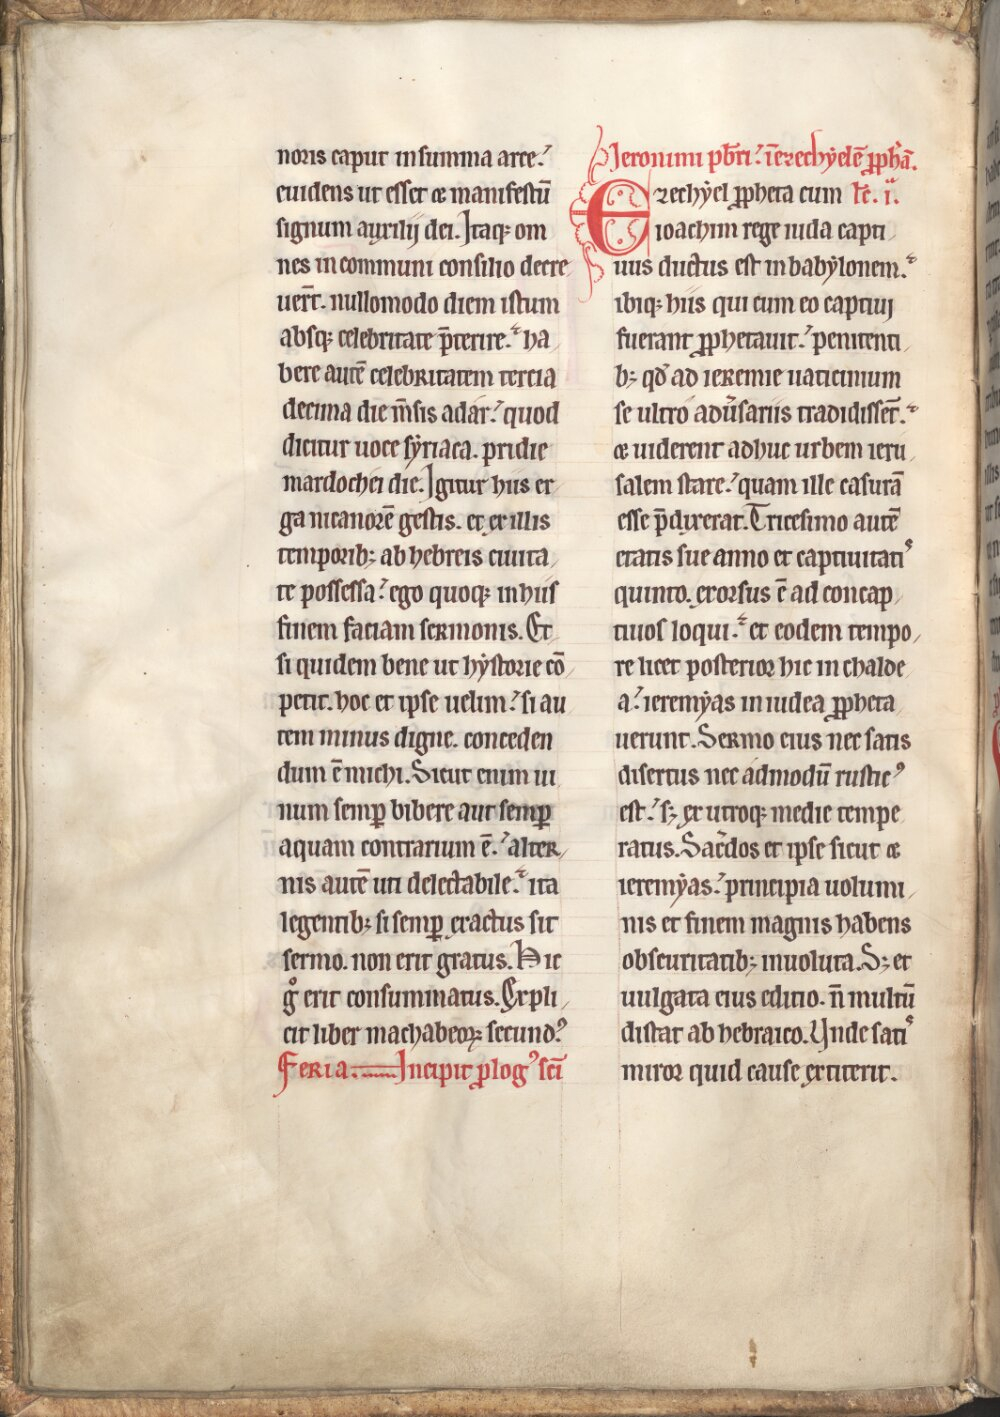 noris caput in summa arce.
euidens ut esset & manifestū
signum auxilij dei. Itaq; om
nes in communi consilio decre
uer̄t. nullomodo diem istum
absq; celebritate p̄terire. ha
bere autē celebritatem tercia
decima die m̄sis adar. quod
dicitur uoce syriaca. pridie
mardochei die. Igitur hiis er
ga nicanorē gestis. et ex illis
temporib; ab hebreis ciuita
te possessa. ego quoq; in hiis
finem faciam sermonis. Et
si quidem bene ut hẏstorie cō
petit. hoc et ipse uelim. si au
tem minus digne. conceden
dum ē michi. Sicut enim ui
num semꝑ bibere aut semꝑ
aquam contrarium ē. alter
nis autē uti delectabile. ita
legentib; si semꝑ exactus sit
sermo. non erit gratus. Hic
g̊ erit consummatus. Expli
cit liber machabeoꝝ secundꝰ
Feria. Incipit ꝓlogꝰ sc̄i
Ieronimi pb̄ri. ī ezechẏelē ꝓph̄ā.
Ezechẏel ꝓpheta cum fe. ii.
ioachim rege iuda capti
uus ductus est in babẏlonem.
ibiq; hiis qui cum eo captiuj
fuerant ꝓphetauit. penitenti
b; qd̄ ad ieremie uaticinium
se ultro adu̓sariis tradidisser̄t.
& uiderent adhuc urbem ieru
salem stare. quam ille casurā
esse p̄dixerat. Tricesimo autē
etatis sue anno et captiuitatiꝰ
quinto. exorsus ē ad concap
tiuos loqui. et eodem tempo
re licet posterior hic in chalde
a. ieremẏas in iudea ꝓpheta
uerunt. Sermo eius nec satis
disertus nec admodū rusticꝰ
est. s; ex utroq; medie tempe
ratus. Sac̓dos et ipse sicut &
ieremẏas. principia uolumi
nis et finem magnis habens
obscuritatib; inuoluta. S; et
uulgata eius editio. n̄ multū
distat ab hebraico. Unde satiꝰ
miror quid cause extiterit.